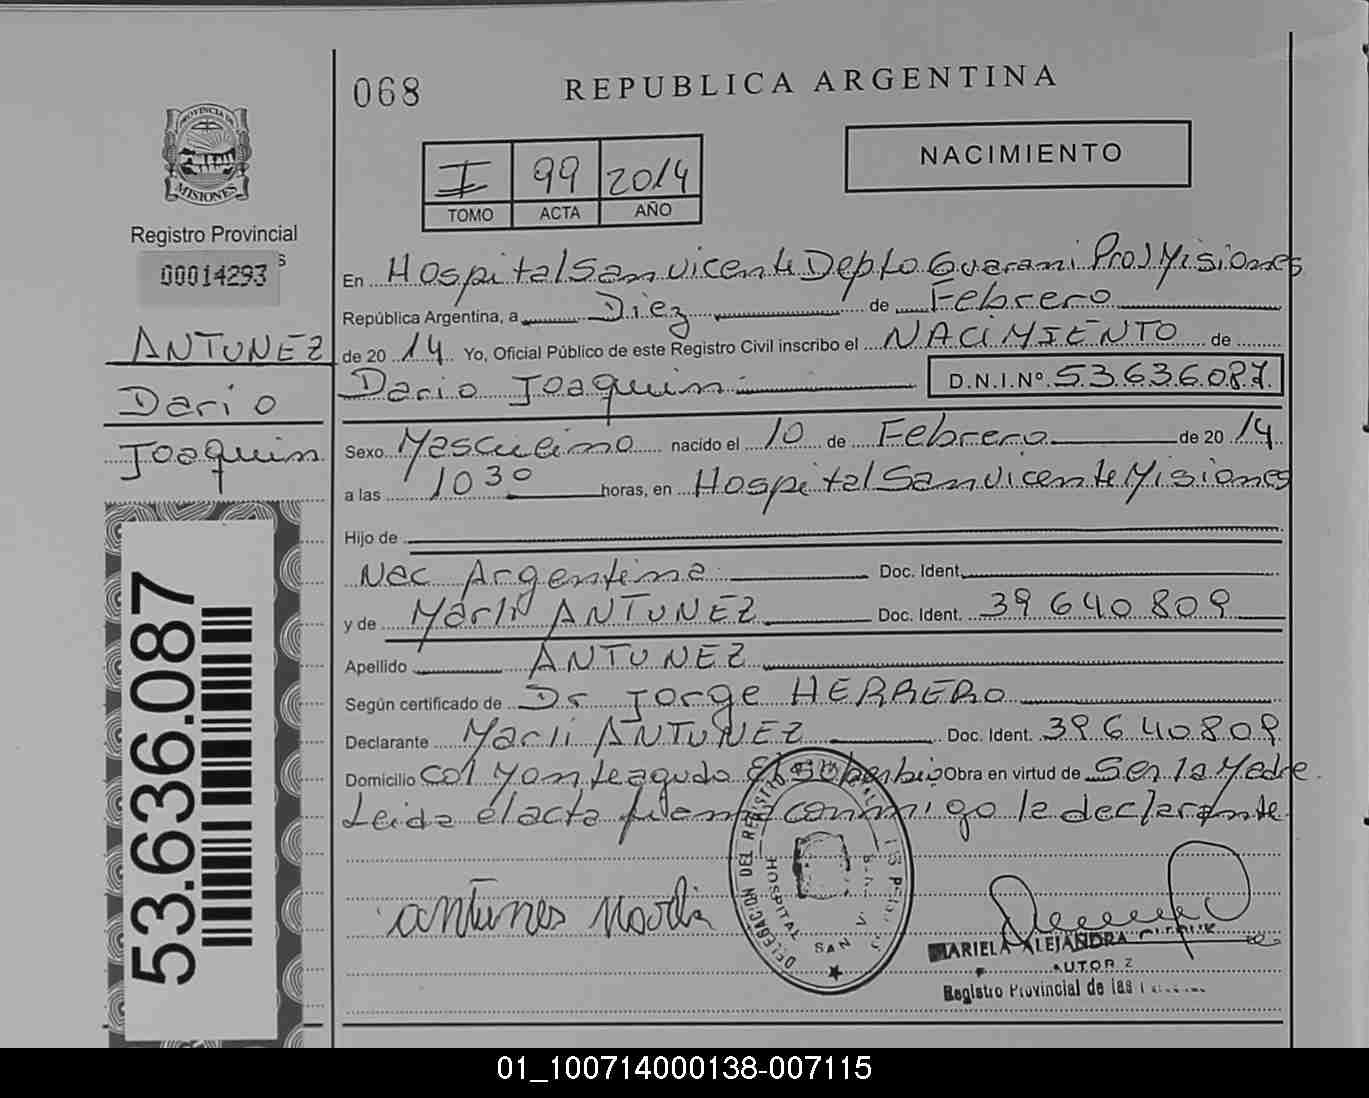 068
REPUBLICA ARGENTINA
PROVINCIA DE
MISIONES
Registro Provincial
00014293
ANTUNEZ
Dario
Joaquin
53.636.087
I 99 2014
TOMO ACTA AÑO
NACIMIENTO
En Hospital San Vicente Depto Guarani Prov Misiones
República Argentina, a Diez de Febrero
de 20 14 Yo, Oficial Público de este Registro Civil inscribo el NACIMIENTO de
Dario Joaquin D.N.I.Nº 53.636.087.
Sexo Masculino nacido el 10 de Febrero de 20 14
a las 10 30 horas, en Hospital San Vicente Misiones
Hijo de
Nac Argentina Doc. Ident.
y de Marli ANTUNEZ Doc. Ident. 39 640 809
Apellido ANTUNEZ
Según certificado de Dr Jorge HERRERO
Declarante Marli ANTUNEZ Doc. Ident. 39 640.809
Domicilio Col Monteagudo El Soberbio Obra en virtud de Ser la Madre
Leida el acta firma conmigo la declarante
DELEGACION DEL REGISTRO
HOSPITAL SAN
antunes Marli
MARIELA ALEJANDRA
Registro Provincial de las
01_100714000138-007115